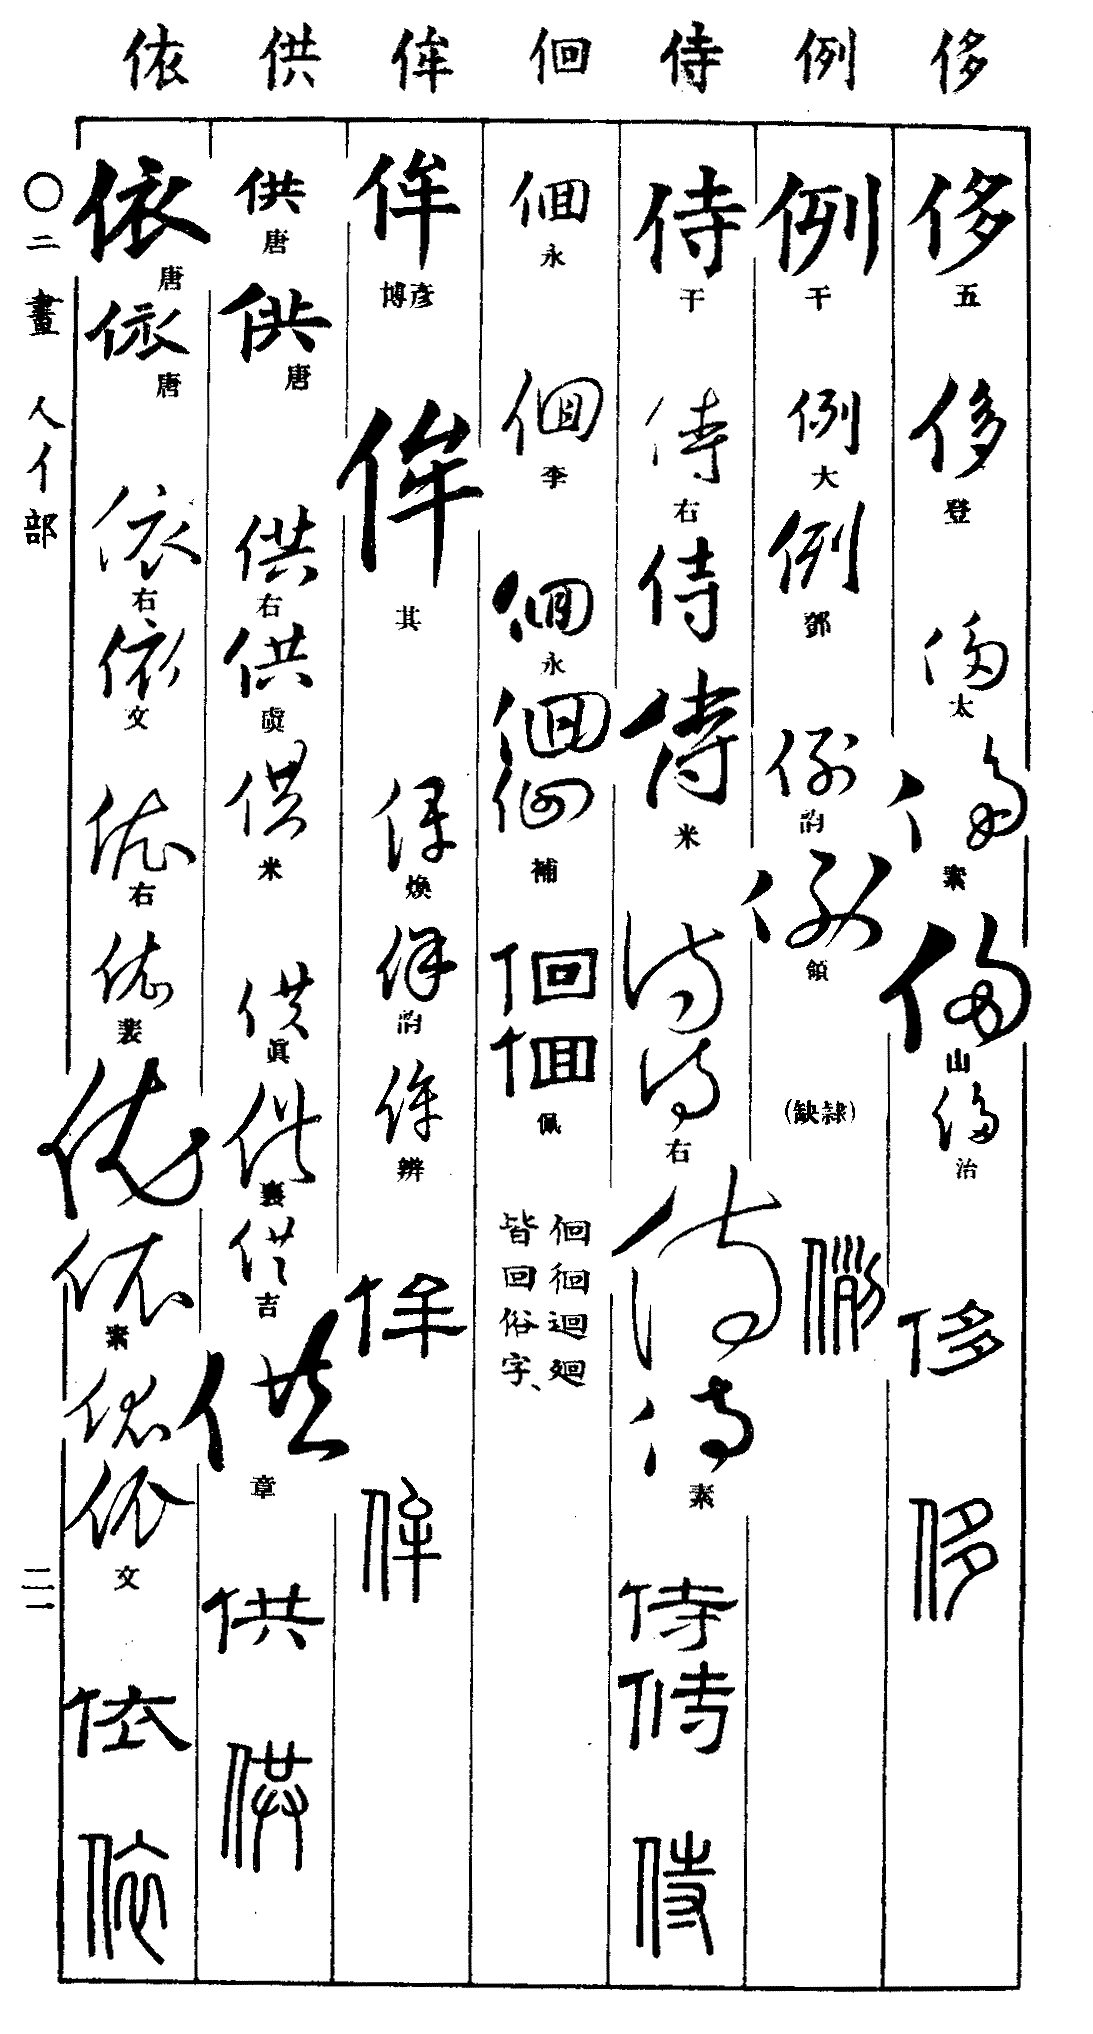 侈 例 侍 佪 侔 供 依
侈 五 侈 登 侈 太 侈 素 侈 山 侈 治 侈 侈
例 干 例 大 例 鄧 例 韵 例 領 (缺隷) 例
侍 干 侍 右 侍 侍 米 侍 侍 右 侍 侍 素 侍 侍 侍
佪 永 佪 李 佪 永 佪 佪 補 佪 佪 佩
佪徊迴廻
皆回俗字、
侔 博彦 侔 其 侔 煥 侔 韵 侔 辨 侔 侔
供 唐 供 唐 供 右 供 虞 供 米 供 眞 供 襄 供 吉 供 章 供 供
依 唐 依 唐 依 右 依 文 依 右 依 裴 依 依 素 依 依 文 依 依
〇二畫 人亻部 二一